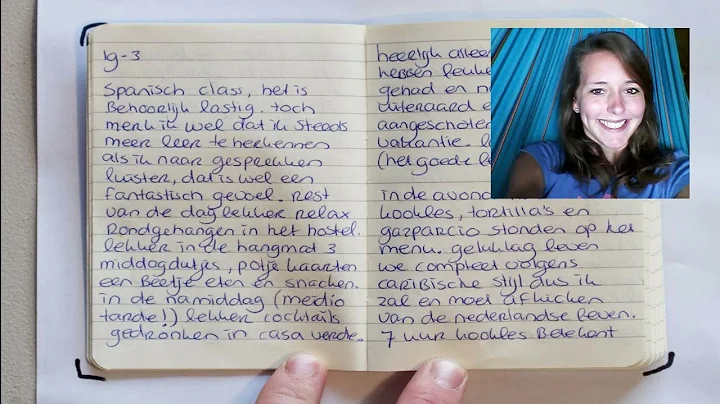 19-3
Spanisch class, het is
Behoorlijk lastig. toch
merk ik wel dat ik steeds
meer leer te herkennen
als ik naar gesprekken
luister, dat is wel een
fantastisch gevoel. Rest
van de dag lekker relax
Rondgehangen in het hostel.
lekker in de hangmat 3
middagdutjes, potje kaarten
een Beetje eten en snacken.
in de namiddag (medio
tarde!) lekker cocktails
gedronken in casa verde.
heerlijk alleen
hebben leuke
gehad en n
uiteraard e
aangeschoten
vakantie. l
(het goede le
in de avond
kookles, tortilla's en
gazpacio stonden op het
menu. gelukkig leven
we compleet volgens
caribische stijl dus ik
zal en moet afkicken
van de nederlandse leven.
7 uur kookles Betekent